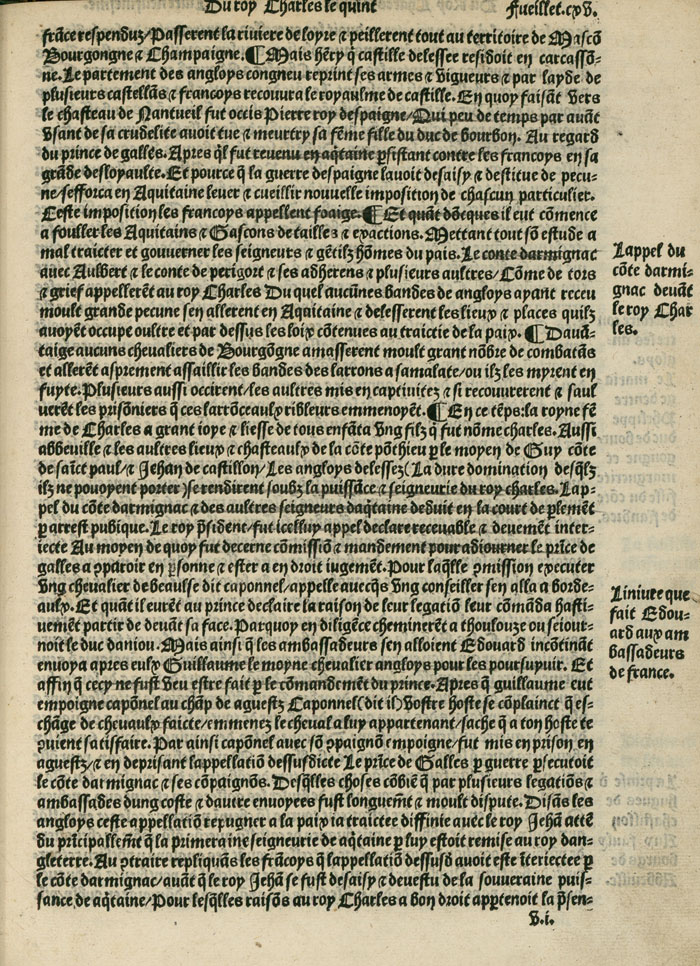 Du roy Charles le quint Fueillet.cxv.
frãce respenduz/Passerent la riuiere de loyre ⁊ peillerent tout au territoire de Mascõ
Bourgongne ⁊ Champaigne.¶Mais hẽry q̃ castille delessee residoit en carcassõ-
ne.Le partement des angloys congneu reprint ses armes ⁊ vigueurs ⁊ par layde de
plusieurs castellãs ⁊ francoys recouura le royaulme de castille.En quoy faisãt vers
le chasteau de Nantueil fut occis Pierre roy despaigne/Qui peu de temps par auãt
vsant de sa crudelite auoit tue ⁊ meurtry sa fẽme fille du duc de bourbon. Au regard
du prince de galles.Apres q̃l fut reuenu en aq̃taine ꝑsistant contre les francoys en sa
grãde desloyaulte.Et pource q̃ la guerre despaigne lauoit desaisy ⁊ destitue de pecu-
ne/sefforca en Aquitaine leuer ⁊ cueillir nouuelle imposition de chascun particulier.
Ceste imposition les francoys appellent foaige.¶Et quãt dõcques il eut cõmence
a fouller les Aquitains ⁊ Gascons de tailles ⁊ exactions.Mettant tout sõ estude a
mal traicter et gouuerner les seigneurs ⁊ gẽtilz hõmes du pais.Le conte darmignac
auec Aulbert ⁊ le conte de perigort ⁊ ses adherens ⁊ plusieurs aultres/Cõme de tors
⁊ grief appellerẽt au roy Charles Du quel aucũnes bandes de angloys ayant receu
moult grande pecune sen allerent en Aquitaine ⁊ delesserent les lieux ⁊ places quilz
auoyẽt occupe oultre et par dessus les loix cõtenues au traictie de la paix. ¶Dauã-
taige aucuns chevaliers de Bourgõgne amasserent moult grant nõbre de combatãs
et allerẽt asprement assaillir les bandes des larrons a samalate/ou ilz les myrent en
fuyte.Plusieurs aussi occirent/les aultres mis en captiuitez ⁊ si recouurerent ⁊ saul
uerẽt les prisõniers q̃ ces larrõceaulx ribleurs emmenoyẽt.¶En ce tẽps:la royne fẽ
me de Charles a grant ioye ⁊ liesse de tous enfãta vng filz q̃ fut nõme charles. Aussi
abbeuille ⁊ les aultres lieux ⁊ chasteaulx de la cõte põthieu ꝑ le moyen de Guy cõte
de sãict paul/⁊ Jehan de castillon/Les angloys delessez(La dure domination desq̃lz
ilz ne pouoyent porter)se rendirent soubz la puissãce ⁊ seigneurie du roy charles.Lap-
pel du cõte darmignac ⁊ des aultres seigneurs daq̃taine deduit en la court de ꝑlemẽt
ꝑ arrest pubique.Le roy p̃sidene/fut icelluy appel declare receuable ⁊ deuemẽt inter-
iecte Au moyen de quoy fut decerne cõmissiõ ⁊ mandement pour adiourner le prĩce de
galles a ꝯparoir en ꝑsonne ⁊ ester a en droit iugemẽt.Pour laq̃lle ꝯmission executer
vng chevalier de beaulse dit caponnel/appelle auecq̃s vng conseiller sen alla a borde-
aulx. Et quãt il eurẽt au prince declaire la raison de leur legatiõ leur cõmãda hasti-
uemẽt partir de deuãt sa face.Parquoy en diligẽce cheminerẽt a thoulouze ou seiour-
noit le duc daniou. Mais ainsi q̃ les ambassadeurs sen alloient Edouard incõtinãt
enuoya apres eulx Guillaume le moyne chevalier angloys pour les poursuyuir. Et
affin q̃ cecy ne fust veu estre fait ꝑ le cõmandemẽt du prince.Apres q̃ guillaume eut
empoigne capõnel au chãp de aguestz Caponnel(dit il)vostre hoste se cõplainct q̃ es-
chãge de cheuaulx faicte/emmenez le cheval a luy appartenant/sache q̃ a ton hoste te
ꝯuient satisfaire. Par ainsi capõnel auec sõ ꝯpaignõ empoigne/fut mis en prison en
aguestz/⁊ en deprisant lappellatiõ dessusdicte Le prĩce de Galles ꝑ guerre ꝑsecutoit
le cõte darmignac ⁊ ses cõpaignõs. Desq̃lles choses cõbiẽ q̃ par plusieurs legatiõs ⁊
ambassades dung coste ⁊ dautre enuoyees fust longuem̃t ⁊ moult dispute. Disãs les
angloys ceste appellatiõ repugner a la paix ia traictee diffinie auec le roy Jehã attẽ
du prĩcipallem̃t q̃ la primeraine seigneurie de aq̃taine ꝑ luy estoit remise au roy dan-
gleterre. Au ꝯtraire repliquãs les frãcoys q̃ lappellatiõ dessusd auoit este iteriectee ꝑ
le cõte darmignac/auãt q̃ le roy Jehã se fust desaisy ⁊ deuestu de la souueraine puis-
sance de aq̃taine/Pour lesq̃lles raisõs au roy Charles a bon droit appartenoit la p̃sen-
v.i.
Lappel du
cõte darmi-
gnac deuãt
le roy Char
les.
Liniure que
fait Edou-
ard aux am
bassadeurs
de france.